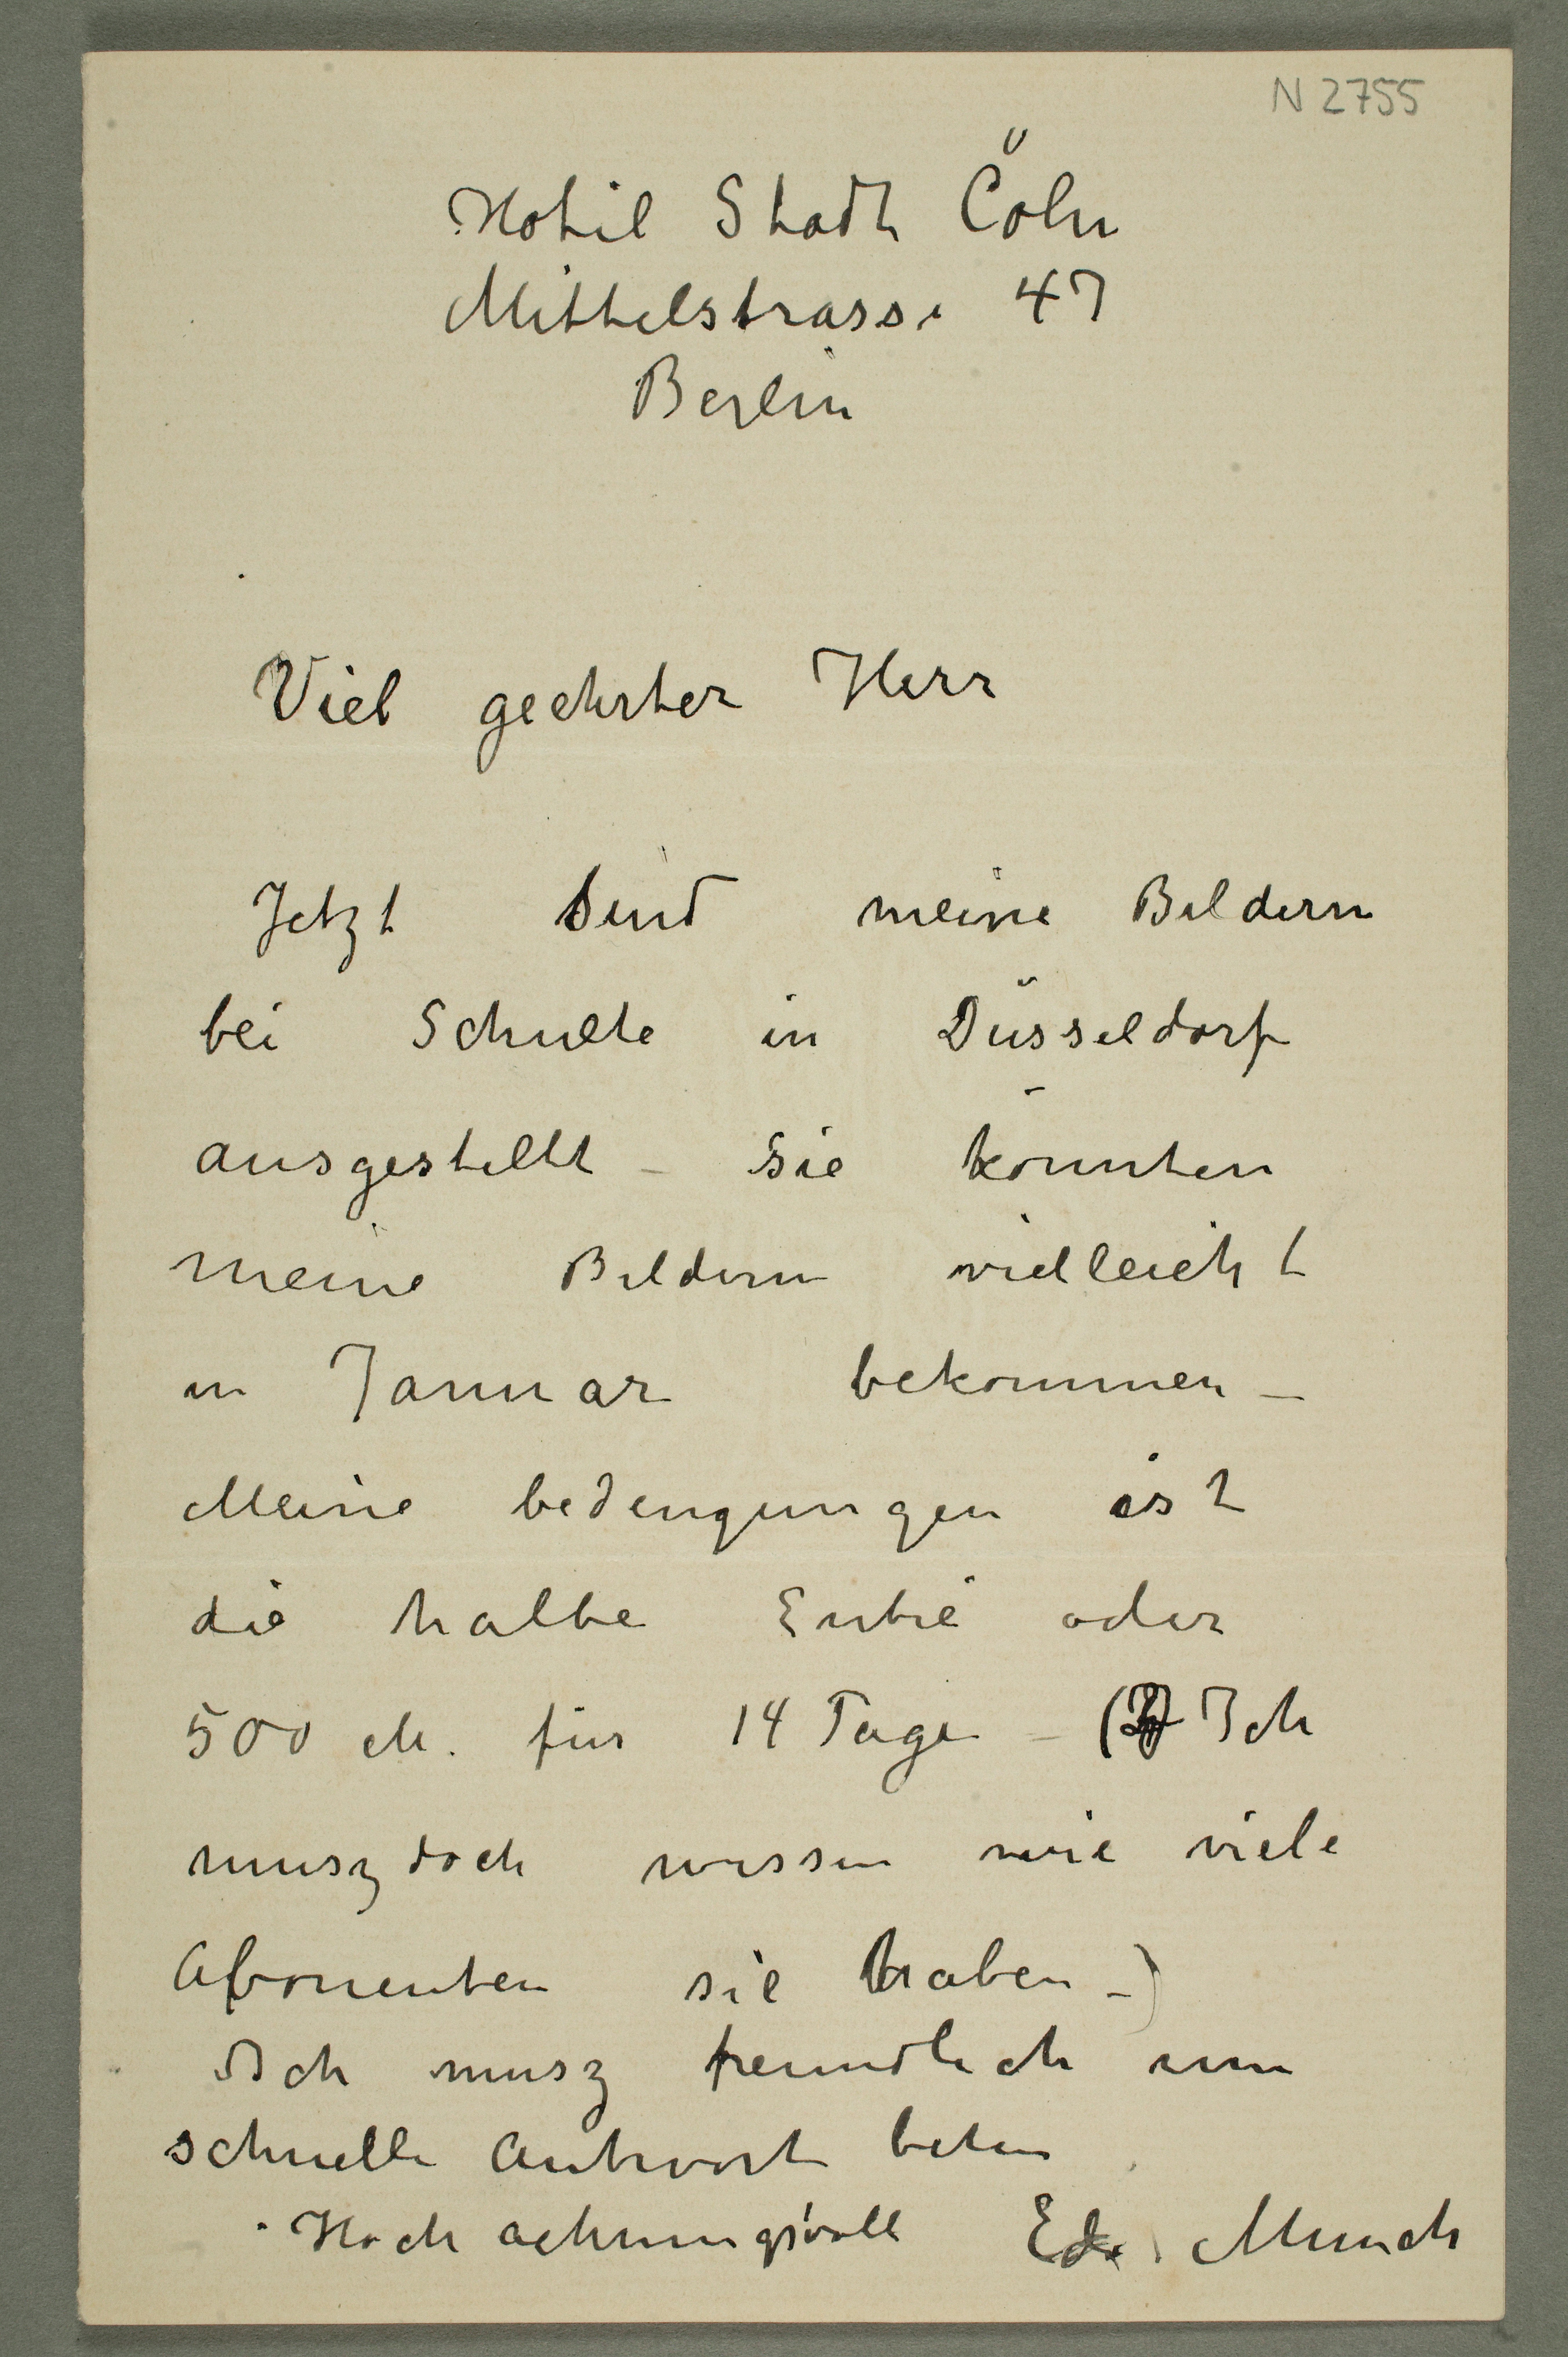 N 2755
Hotel Stadt Cöln
Mittelstrasse 47
Berlin
Viel geehrter Herr
Jetzt sind meine Bildern
bei Schulte in Düsseldorf
ausgestellt – Sie könnten
meine Bildern vielleicht
in Januar bekommen –
Meine bedingungen ist
die halbe Entré oder
500 M. für 14 Tage – ( Ich
musz doch wissen wie viele
Abonenten sie haben –)
Ich musz freundlich um
schnelle Antwort beten
Hoch achtungsvoll Ed. Munch